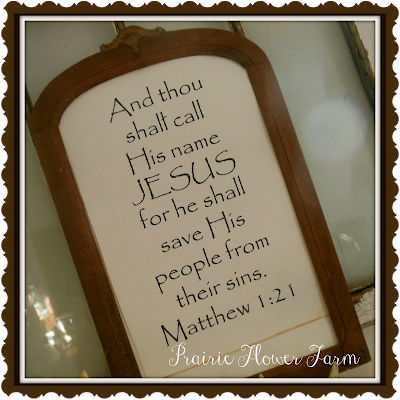 And thou
shalt call
His name
JESUS
for he shall
save His
people from
their sins.
Matthew 1:21
Prairie Flower Farm